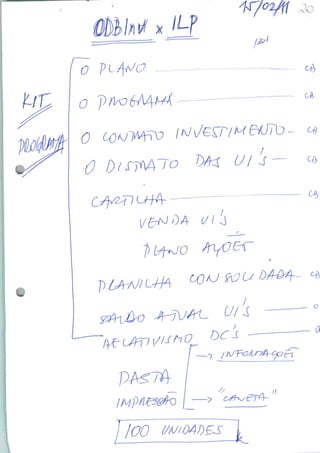 15/02/11 20
ODBInv x ILP
O PLANO CB
O PROGRAMA CB
KIT
PROGRAMA
O CONTRATO INVESTIMENTO - CB
O DISTRATO DAS UI'S - CB
CARTILHA CB
VENDA UI'S
PLANO AÇÕES
PLANILHA CONSOLIDADA - CB
SALDO ATUAL UI'S
RELATIVISMO DC'S
→ INFORMAÇÕES
PASTA
IMPRESSÃO → "CANETA"
100 UNIDADES